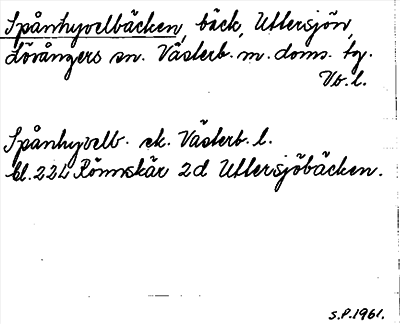 Spånhyvelbäcken, bäck, Uttersjön,
Lövångers sn. Västerb. m. doms. tg.
Vb. l.
Spånhyvelb. ek. Västerb. l.
bl. 22L Rönnskär 2d Uttersjöbäcken.
S.P. 1961.